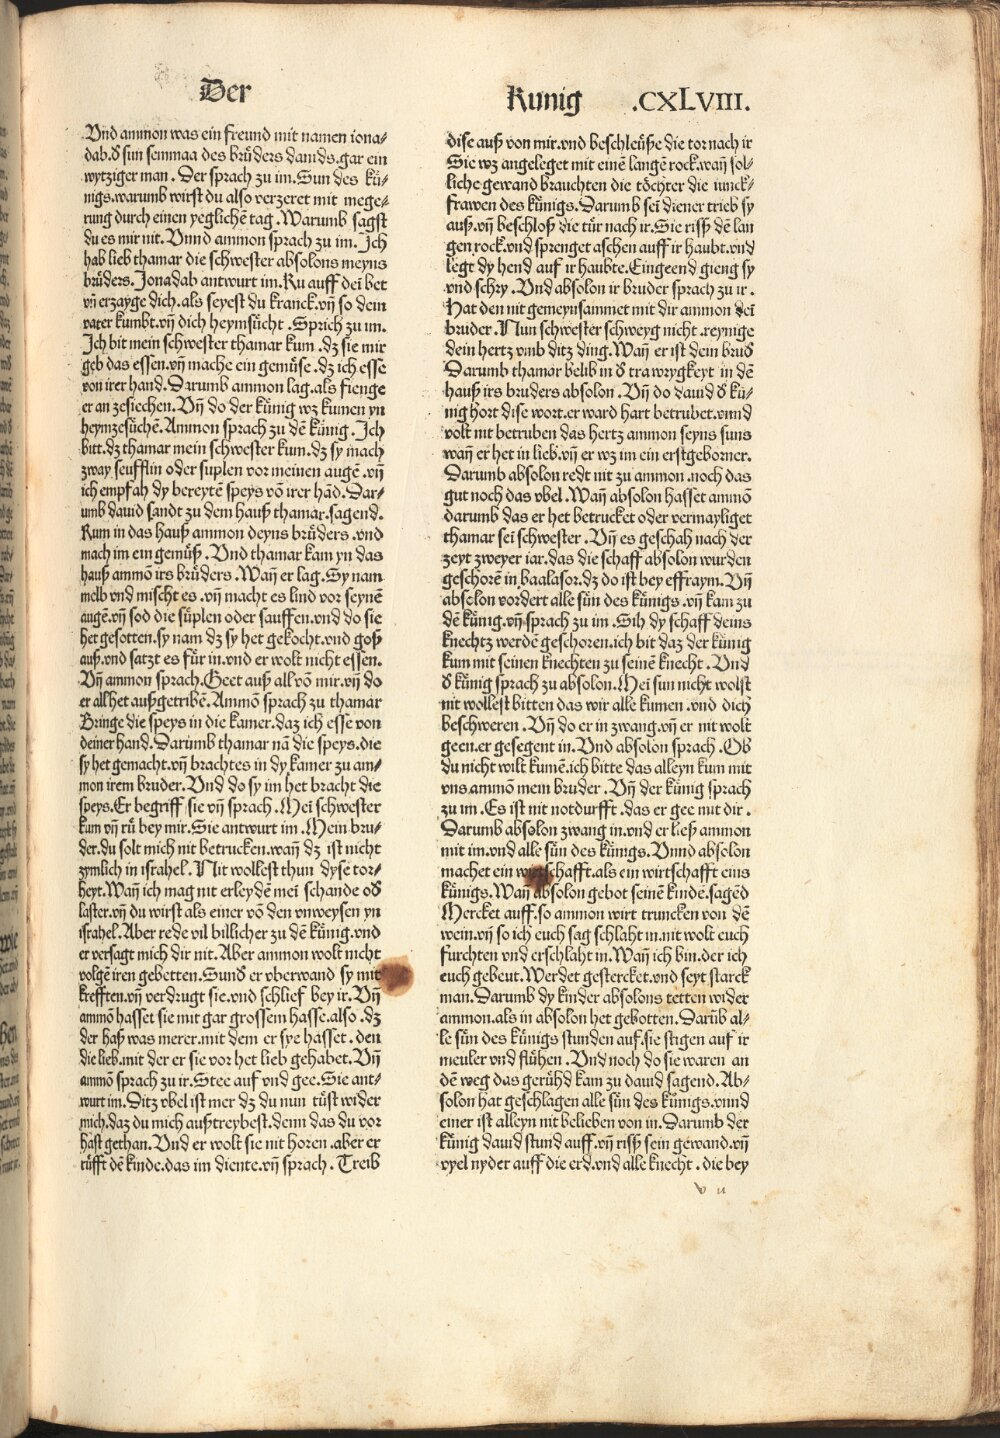 Der
Kunig .CXLVIII.
Vnd ammon was ein freund mit namen iona⸗
dab.ð sun semmaa des brůders dauids.gar ein
wytziger man . Der sprach zu im. Sun des kü⸗
nigs.warumb wirst du also verzeret mit mege⸗
rung durch einen yeglichē tag . Warumb sagst
du es mir nit. Vnnd ammon sprach zu im. Ich
hab lieb thamar die schwester absolons meyns
brůders. Jonadab antwurt im. Ru auff dei bet
vñ erzayge dich.als seyest du kranck.vñ so dem
vater kumbt.vñ dich heymsücht .Sprich zu im.
Ich bit mein schwester thamar kum .dz sie mir
geb das essen.vñ mache ein gemůse .dz ich esse
von irer hand. Darumb ammon lag.als fienge
er an zesiechen. Vñ do der künig wz kumen yn
heymzesüchē. Ammon sprach zu dē künig . Ich
bitt.dz thamar mein schwester kum.dz sy mach
zway seufflin oder suplen vor meinen augē .vñ
ich empfah dy bereytē speys vō irer hād. Dar⸗
umb dauid sandt zu dem hauß thamar.sagend.
Kum in das hauß ammon deyns brůders .vnd
mach im ein gemüß . Vnd thamar kam yn das
hauß ammō irs brůders . Wañ er lag. Sy nam
melb vnd mischt es .vñ macht es lind vor seynē
augē.vñ sod die süplen oder sauffen.vnd do sie
het gesotten.sy nam dz sy het gekocht.vnd goß
auß.vnd satzt es für in.vnd er wolt nicht essen.
Vñ ammon sprach. Geet auß all vō mir.vñ do
er all het außgetribē. Ammō sprach zu thamar
Bringe die speys in die kamer.daz ich esse von
deiner hand. Darumb thamar nā die speys.die
sy het gemacht.vñ brachtes in dy kamer zu am⸗
mon irem bruder. Vnd do sy im het bracht die
speys. Er begriff sie vñ sprach . Mei schwester
kum vñ rů bey mir. Sie antwurt im . Mein bru⸗
der.du solt mich nit betrucken.wañ dz ist nicht
zymlich in israhel. Nit wollest thun dyse tor⸗
heyt. Wañ ich mag nit erleydē mei schande oð
laster.vñ du wirst als einer vō den vnweysen yn
israhel. Aber rede vil billicher zu dē künig.vnd
er versagt mich dir nit. Aber ammon wolt nicht
volgē iren gebetten. Sunð er vberwand sy mit
krefften.vñ verdrugt sie.vnd schlief bey ir. Vñ
ammō hasset sie mit gar grossem hasse.also .dz
der haß was merer.mit dem er sye hasset . den
die lieb.mit der er sie vor het lieb gehabet. Vñ
ammō sprach zu ir. Stee auf vnd gee. Sie ant⸗
wurt im. Ditz vbel ist mer dz du nun tůst wider
mich.daz du mich außtreybest.denn das du vor
hast gethan. Vnd er wolt sie nit horen .aber er
růfft dē kinde.das im diente.vñ sprach . Treib
dise auß von mir.vnd beschleüße die tor nach ir
Sie wz angeleget mit einē langē rock.wañ sol⸗
liche gewand brauchten die töchter die iunck⸗
frawen des künigs. Darumb sei diener trieb sy
auß.vñ beschloß die tür nach ir. Sie riss dē lan
gen rock.vnd sprenget aschen auff ir haubt.vnd
legt dy hend auf ir haubte. Eingeend gieng sy
vnd schry . Vnd absolon ir bruder sprach zu ir .
Hat den nit gemeynsammet mit dir ammon dei
bruder . Nun schwester schweyg nicht .reynige
dein hertz vmb ditz ding. Wañ er ist dein bruð
Darumb thamar belib in ð trawrygkeyt in dē
hauß irs bruders absolon . Vñ do dauid ð kü⸗
nig hort dise wort.er ward hart betrubet.vnnd
wolt nit betruben das hertz ammon seyns suns
wañ er het in lieb.vñ er wz im ein erstgeborner.
Darumb absolon redt nit zu ammon .noch das
gut noch das vbel . Wañ absolon hasset ammō
darumb das er het betrucket oder vermayliget
thamar sei schwester . Vñ es geschah nach der
zeyt zweyer iar.das die schaff absolon wurden
geschorē in baalasor.dz do ist bey effraym. Vñ
absolon vordert alle sün des künigs .vñ kam zu
dē künig.vñ sprach zu im . Sih dy schaff deins
knechtz werdē geschoren.ich bit daz der künig
kum mit seinen knechten zu seinē knecht . Vnd
ð künig sprach zu absolon. Mei sun nicht wolst
nit wollest bitten das wir alle kumen .vnd dich
beschweren . Vñ do er in zwang.vñ er nit wolt
geen.er gesegent in. Vnd absolon sprach . Ob
du nicht wilt kumē.ich bitte das alleyn kum mit
vns ammō mein bruder . Vñ der künig sprach
zu im . Es ist nit notdurfft .das er gee mit dir .
Darumb absolon zwang in.vnd er ließ ammon
mit im.vnd alle sün des künigs. Vnnd absolon
machet ein wirtschafft.als ein wirtschafft eins
künigs. Wañ absolon gebot seinē kinde.sagēd
Mercket auff.so ammon wirt truncken von dē
wein.vñ so ich euch sag schlaht in.nit wolt euch
furchten vnd erschlaht in. Wañ ich bin.der ich
euch gebeut. Werdet gestercket.vnd seyt starck
man. Darumb dy kinder absolons tetten wider
ammon.als in absolon het gebotten. Darūb al⸗
le sün des künigs stunden auf.sie stigen auf ir
meuler vnd fluhen . Vnd noch do sie waren an
dē weg das gerühd kam zu dauid sagend. Ab⸗
solon hat geschlagen alle sün des künigs.vnnd
einer ist alleyn nit belieben von in. Darumb der
künig dauid stund auff.vñ riss sein gewand.vñ
vyel nyder auff die erd.vnd alle knecht . die bey
v ii